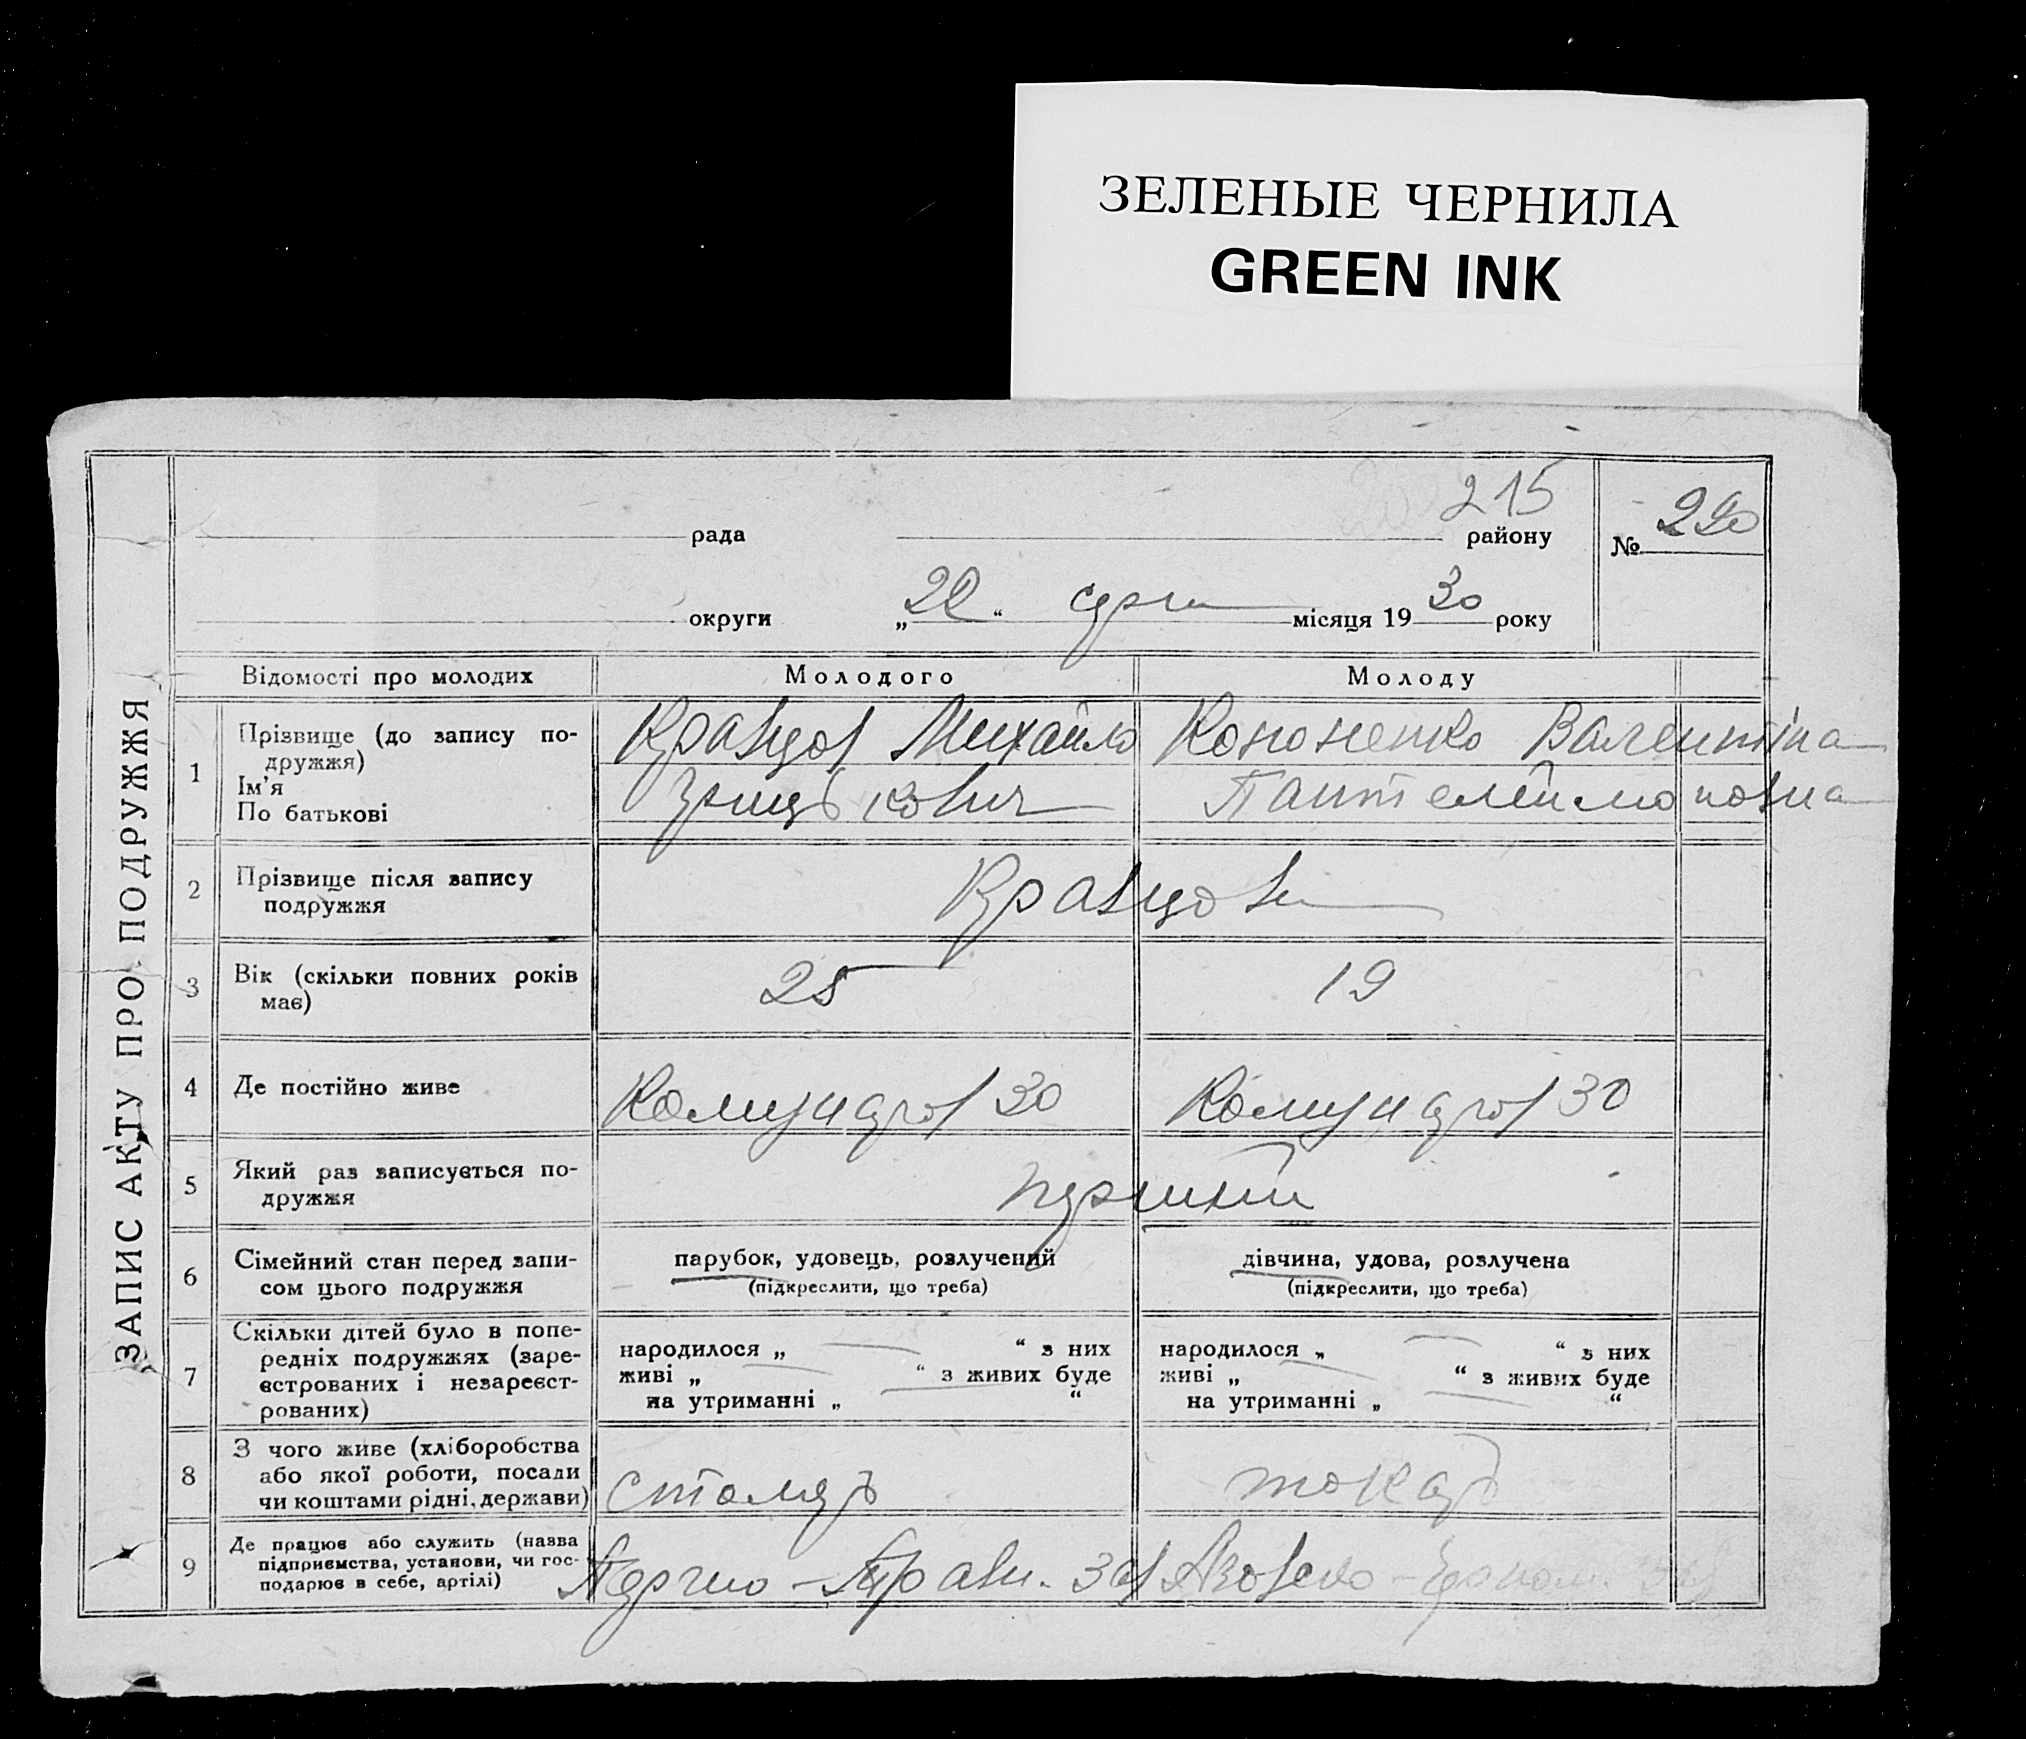 ЗЕЛЕНЫЕ ЧЕРНИЛА
GREEN INK
ЗАПИС АКТУ ПРО ПОДРУЖЖЯ
215
рада района району № 220
округи „22“ серп місяця 1930 року
Відомості про молодих Молодого Молоду
1 Прізвище (до запису по-
дружжя)
Ім'я
По батькові
Кравцов Михайло Кононенко Валентіна
Грицькович Пантелеймоновна
2 Прізвище після запису
подружжя
Кравцови
3 Вік (скільки повних років
має)
25 19
4 Де постійно живе
30 30
5 Який раз записується по-
дружжя
перший
6 Сімейний стан перед запи-
сом цього подружжя
парубок, удовець, розлучений дівчина, удова, розлучена
(підкреслити, що треба) (підкреслити, що треба)
7 Скільки дітей було в попе-
редніх подружжях (заре-
єстрованих і незареєст-
рованих)
народилося „ “ з них народилося „ “ з них
живі „ “ з живих буде живі „ “ з живих буде
на утриманні „ “ на утриманні „ “
8 З чого живе (хліборобства
або якої роботи, посади
чи коштами рідні, держави)
столяр токар
9 Де працює або служить (назва
підприємства, установи, чи гос-
подарює в себе, артілі)